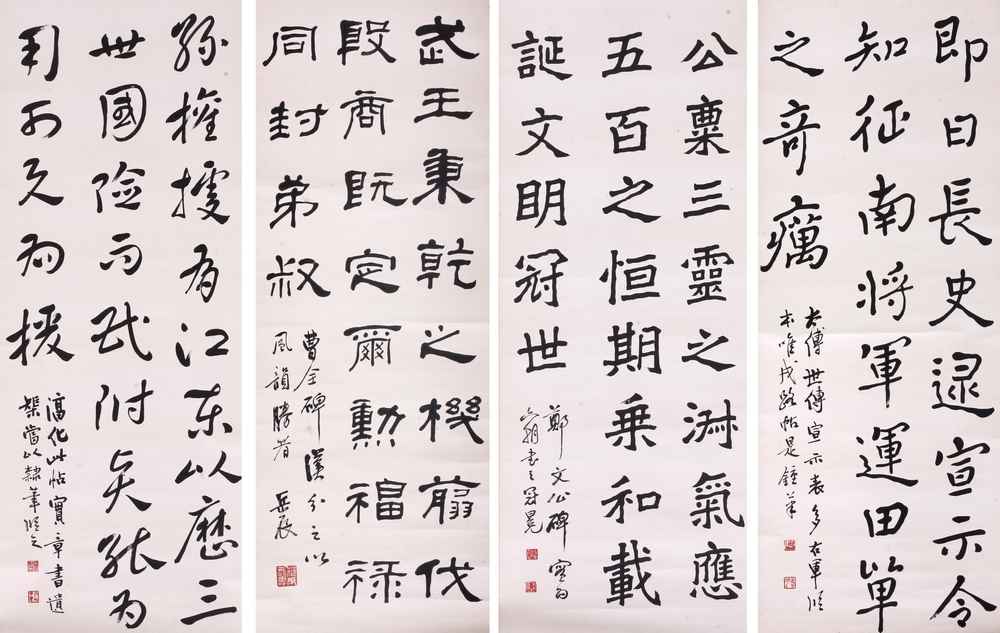 即日長史逯宣示令
知征南將軍運田單
之奇癘
太傅世傳宣示表多右軍臨
本唯戎路帖是鍾筆
公稟三靈之淑氣應
五百之恒期乘和載
誕文明冠世
鄭文公碑寔為
六朝書之冠冕
武王秉乾之機翦伐
殷商既定爾勳福祿
同封弟叔
曹全碑漢分之以
風韻勝者 岳辰
孫權據有江東以歷三
世國險而民附賢能為
用可與為援
淳化此帖實章書遺
榘當以隸筆臨之